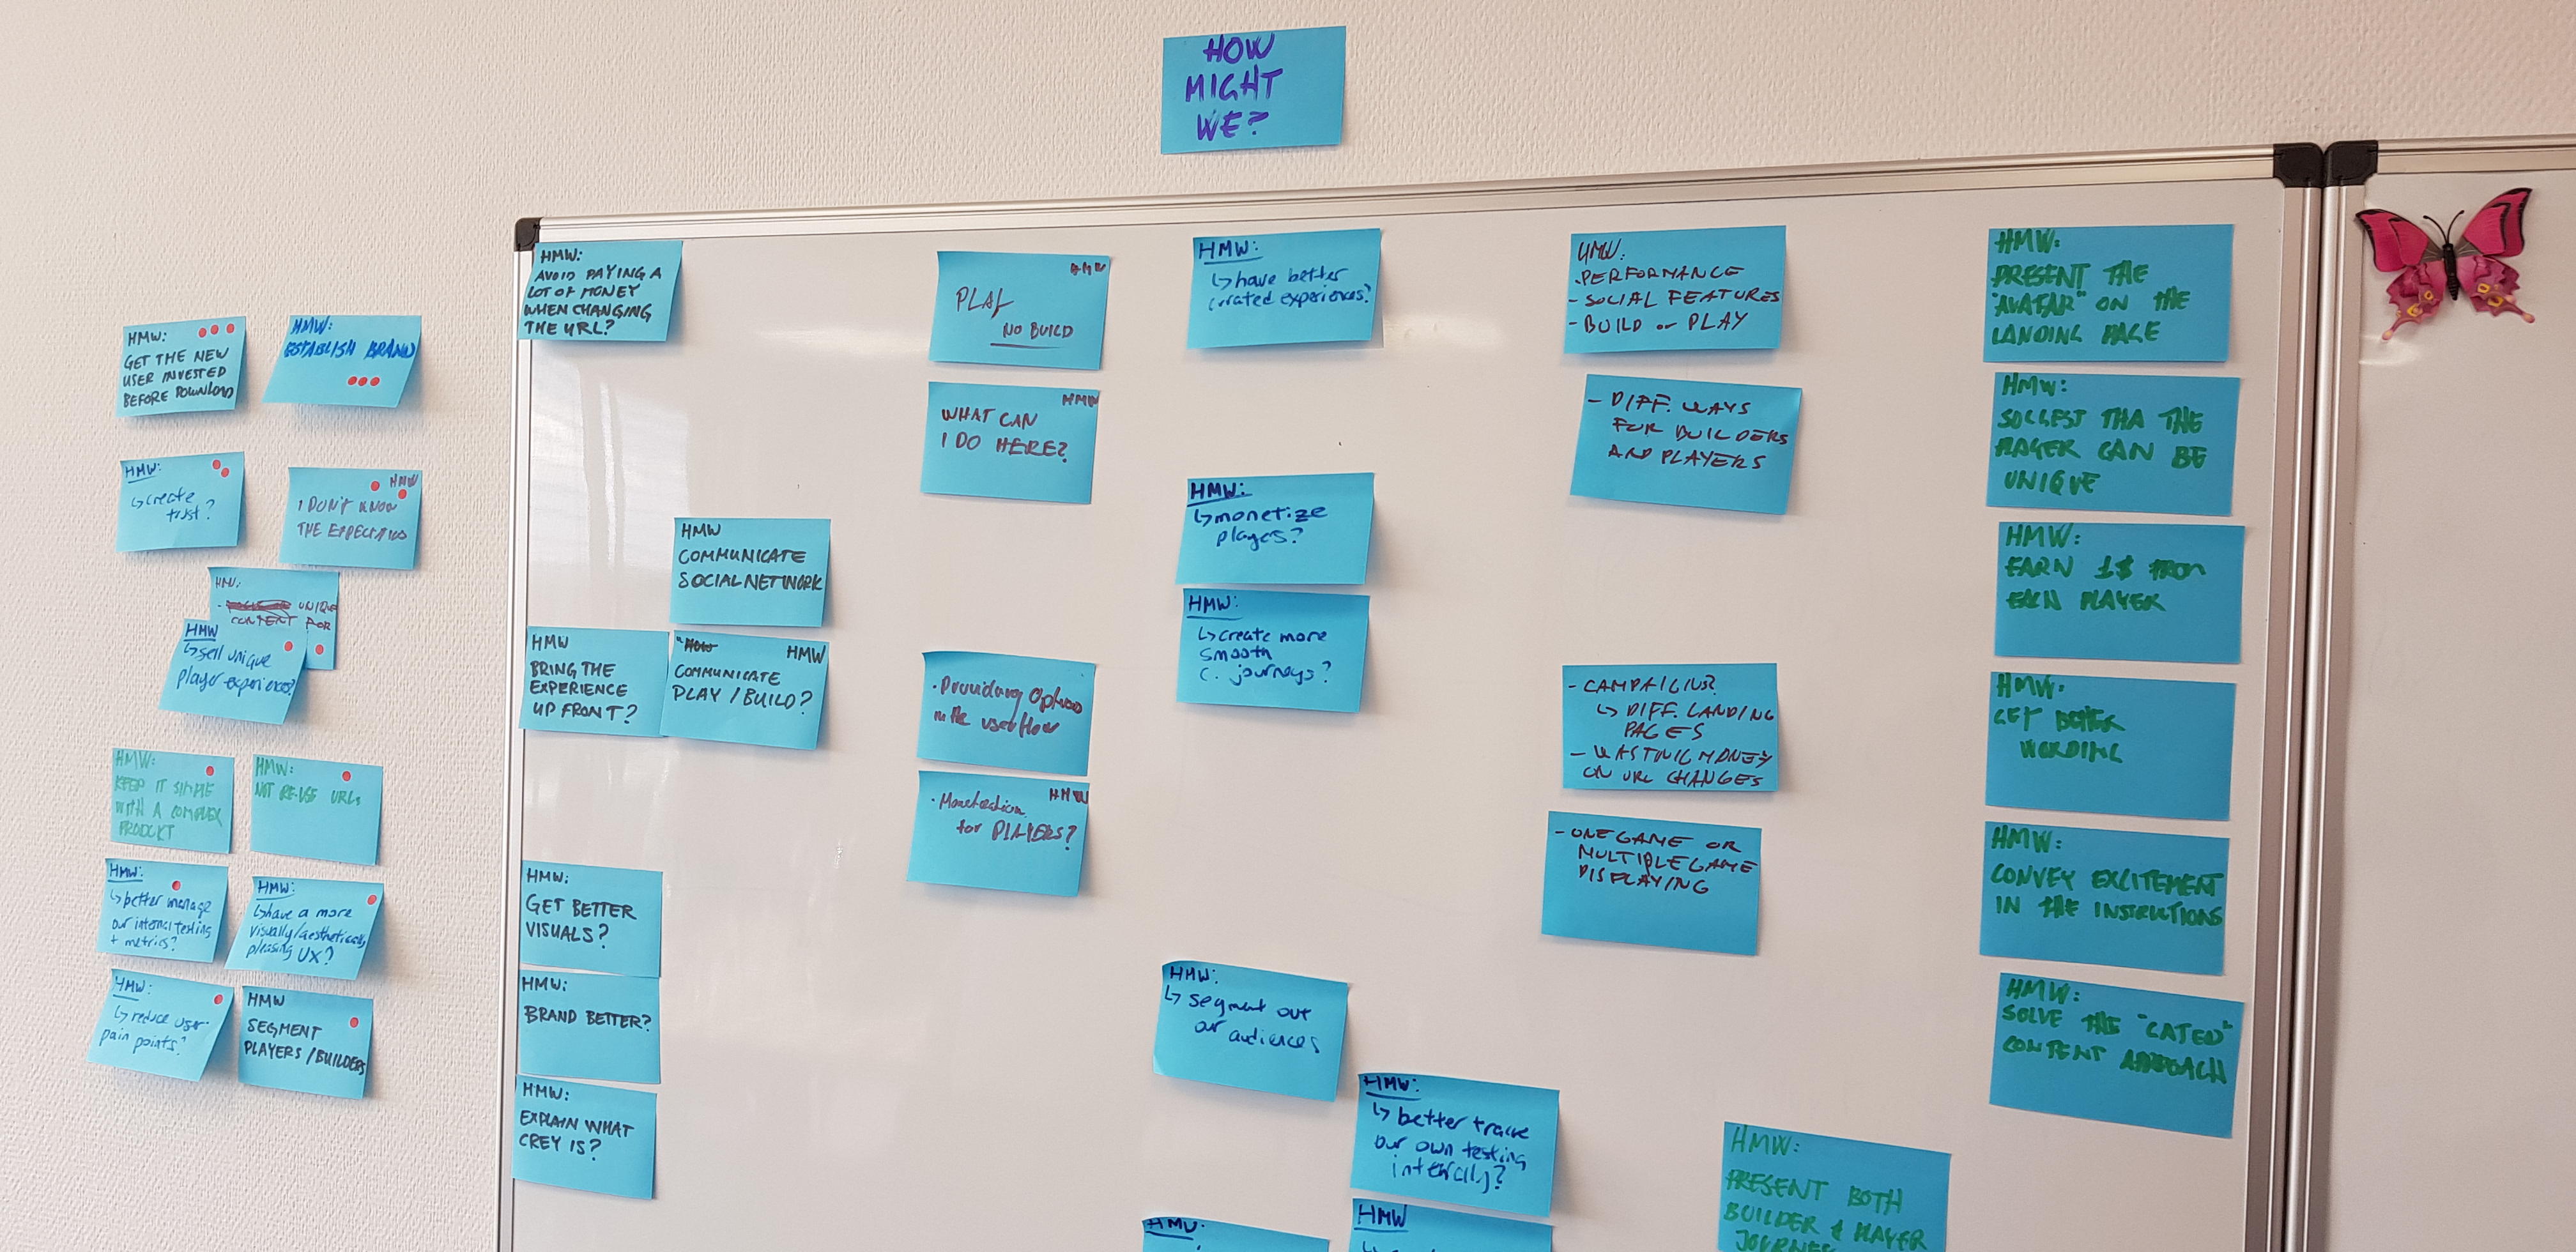 HOW
MIGHT
WE?
HMW:
GET THE NEW
USER INVESTED
BEFORE DOWNLOAD
HMW:
ESTABLISH BRAND
HMW:
↳create
trust?
HMW
I DON'T KNOW
THE
HMW:
- UNIQUE
CONTENT FOR
HMW
↳sell unique
player experiences?
HMW:
KEEP IT SIMPLE
WITH A COMPLEX
PRODUKT
HMW:
NOT RE-USE URLs
HMW:
↳better manage
our internal testing
+ metrics?
HMW:
↳have a more
visually/aesthetically
pleasing UX?
HMW:
↳reduce user
pain points?
HMW
SEGMENT
PLAYERS/BUILDERS
HMW:
AVOID PAYING A
LOT OF MONEY
WHEN CHANGING
THE URL?
HMW
COMMUNICATE
SOCIAL NETWORK
HMW
BRING THE
EXPERIENCE
UP FRONT?
"HOW HMW
COMMUNICATE
PLAY/BUILD?
HMW:
GET BETTER
VISUALS?
HMW:
BRAND BETTER?
HMW:
EXPLAIN WHAT
CREY IS?
HMW
PLAY
NO BUILD
HMW
WHAT CAN
I DO HERE?
· Providing Options
in the userflow
HMW
· Monetization
for PLAYERS?
HMW:
↳have better
curated experiences?
HMW:
↳monetize
players?
HMW:
↳create more
smooth
c. journeys?
HMW:
↳segment out
our audiences
HMW:
↳better track
our own testing
internally?
HMW:
HMW
HMW:
·PERFORMANCE
- SOCIAL FEATURES
- BUILD or PLAY
- DIFF. WAYS
FOR BUILDERS
AND PLAYERS
- CAMPAIGNS?
↳ DIFF. LANDING
PAGES
- WASTING MONEY
ON URL CHANGES
- ONE GAME OR
MULTIPLE GAME
DISPLAYING
HMW:
PRESENT BOTH
BUILDER & PLAYER
HMW:
PRESENT THE
"AVATAR" ON THE
LANDING PAGE
HMW:
SUGGEST THA THE
PLAYER CAN BE
UNIQUE
HMW:
EARN 1$ FROM
EACH PLAYER
HMW:
GET BETTER
WORDING
HMW:
CONVEY EXCITEMENT
IN THE INSTRUCTIONS
HMW:
SOLVE THE "GATED"
CONTENT APPROACH